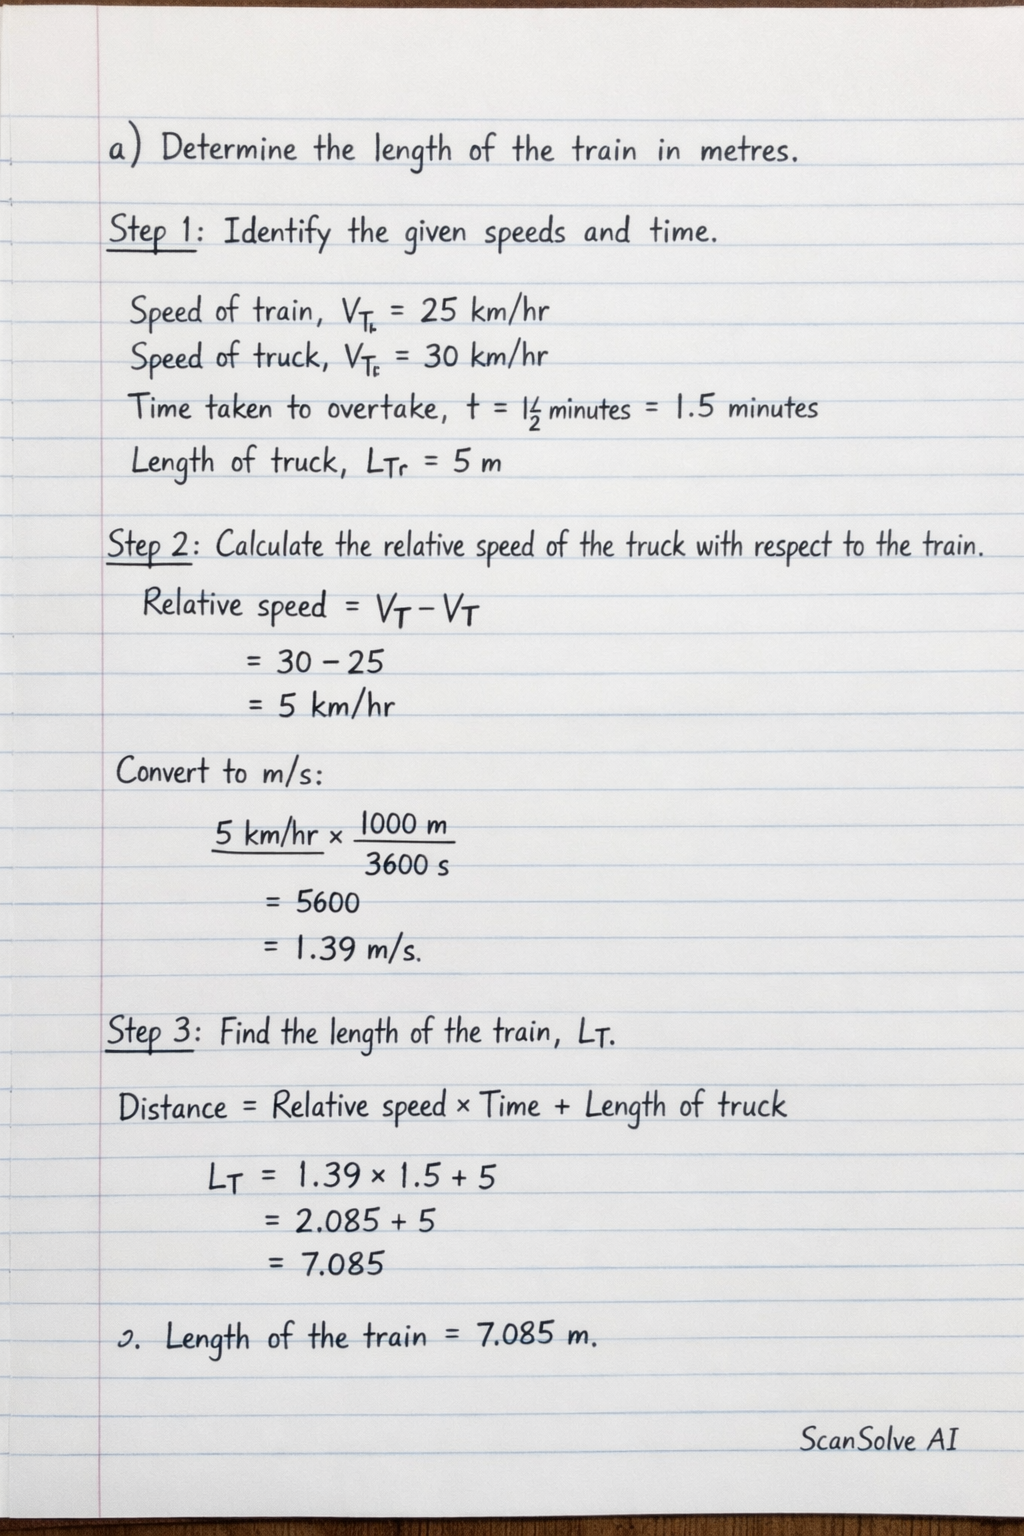 a) Determine the length of the train in metres.
Step 1: Identify the given speeds and time.
Speed of train, V_T = 25 km/hr
Speed of truck, V_T = 30 km/hr
Time taken to overtake, t = 1½ minutes = 1.5 minutes
Length of truck, L_Tr = 5 m
Step 2: Calculate the relative speed of the truck with respect to the train.
Relative speed = V_T − V_T
= 30 − 25
= 5 km/hr
Convert to m/s:
5 km/hr × 1000 m
3600 s
= 5600
= 1.39 m/s.
Step 3: Find the length of the train, L_T.
Distance = Relative speed × Time + Length of truck
L_T = 1.39 × 1.5 + 5
= 2.085 + 5
= 7.085
Length of the train = 7.085 m.
ScanSolve AI